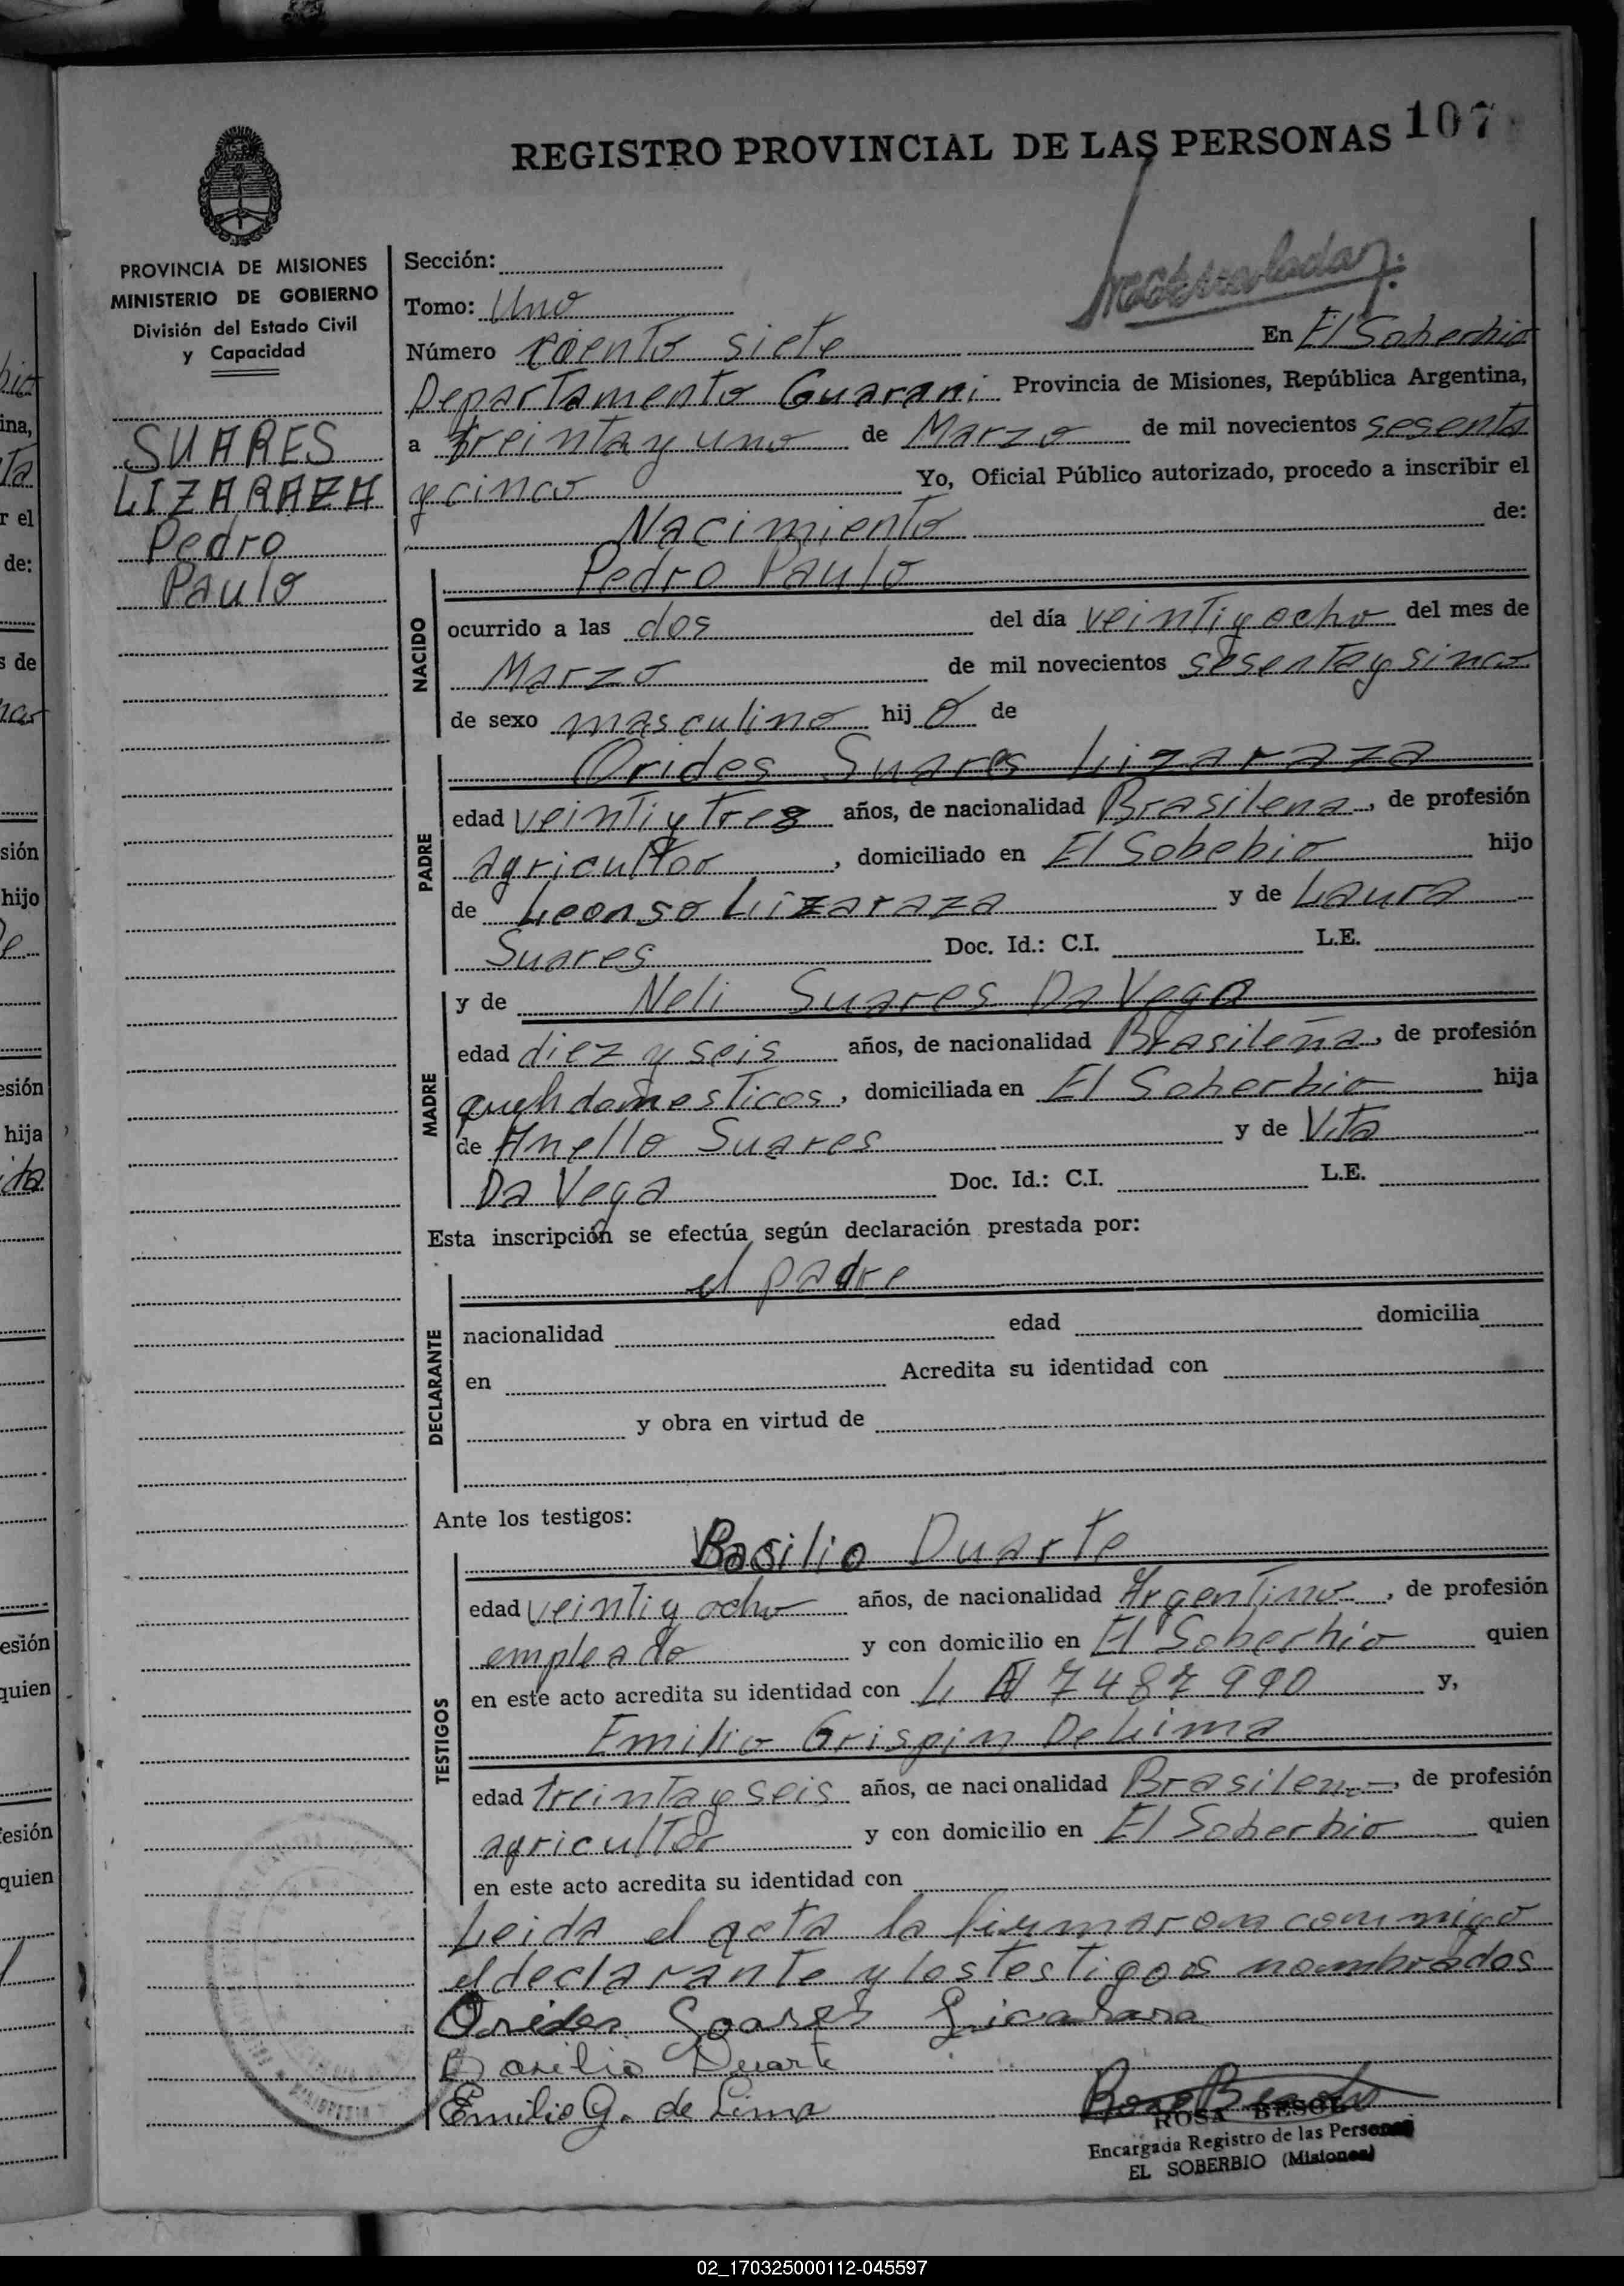 REGISTRO PROVINCIAL DE LAS PERSONAS 107
PROVINCIA DE MISIONES
MINISTERIO DE GOBIERNO
División del Estado Civil
y Capacidad
SUARES
LIZARAZA
Pedro
Paulo
Sección:
Tomo: Uno
Número ciento siete En El Soberbio
Departamento Guarani Provincia de Misiones, República Argentina,
a treinta y uno de Marzo de mil novecientos sesenta
y cinco Yo, Oficial Público autorizado, procedo a inscribir el
Nacimiento de:
NACIDO
Pedro Paulo
ocurrido a las dos del día veinti y ocho del mes de
Marzo de mil novecientos sesenta y sinco
de sexo masculino hij o de
PADRE
Orides Suares Lizaraza
edad veinti y tres años, de nacionalidad Brasilena, de profesión
agricultor, domiciliado en El Sobebio hijo
de Leonso Lizaraza y de Laura
Suares Doc. Id.: C.I. L.E.
MADRE
y de Neli Suares Da Vega
edad diez y seis años, de nacionalidad Brasileña, de profesión
domesticos, domiciliada en El Soberbio hija
de Anello Suares y de Vita
Da Vega Doc. Id.: C.I. L.E.
Esta inscripción se efectúa según declaración prestada por:
DECLARANTE
el padre
nacionalidad edad domicilia
en Acredita su identidad con
y obra en virtud de
Ante los testigos:
TESTIGOS
Basilio Duarte
edad veinti y ocho años, de nacionalidad Argentino, de profesión
empleado y con domicilio en El Soberbio quien
en este acto acredita su identidad con L 7487990 y,
Emilio Grispin De Lima
edad treinta y seis años, de nacionalidad Brasileno, de profesión
agricultor y con domicilio en El Soberbio quien
en este acto acredita su identidad con
Leida el acta la firmaron conmigo
el declarante y los testigos nombrados
Orides Soares
Basilio Duarte
Emilio G. de Lima
ROSA BESOL
Encargada Registro de las Personas
EL SOBERBIO (Misiones)
02_170325000112-045597